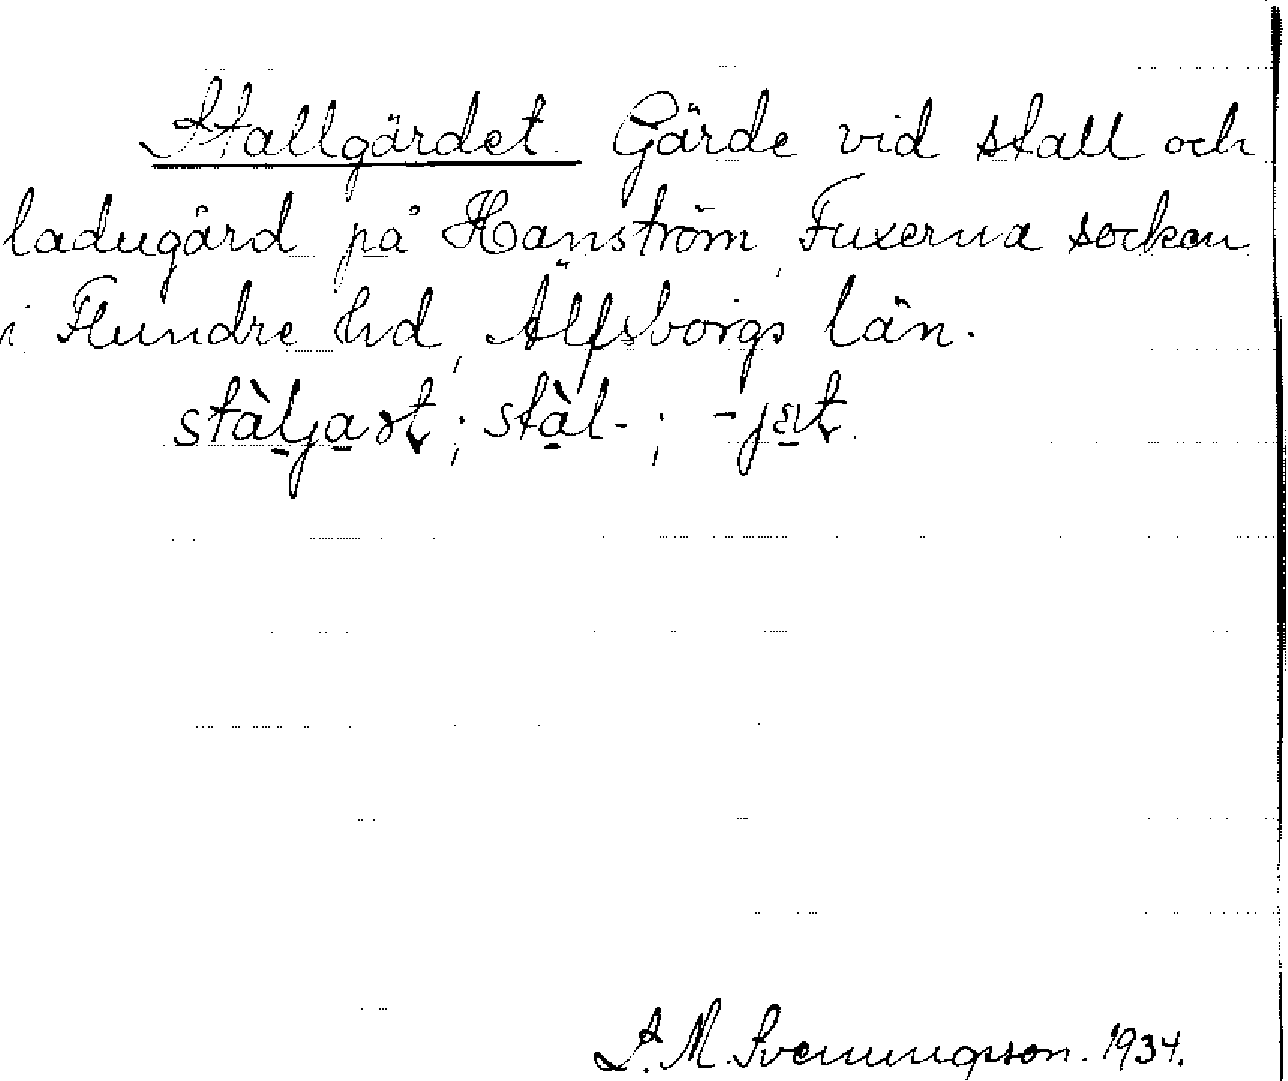 Stallgärdet. Gärde vid stall och
ladugård på Hanström, Fuxerna socken
i Flundre hd, Älfsborgs län.
stàljaṣt; stàl-; -jæt.
S. M. Svenungsson. 1934.